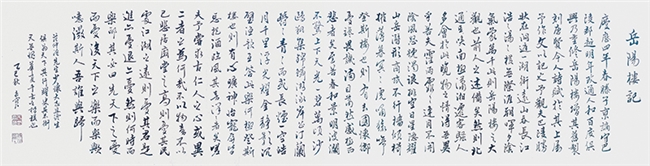 岳陽樓記
慶曆四年春滕子京謫守巴
陵郡越明年政通人和百廢俱
興乃重修岳陽樓增其舊制
刻唐賢今人詩賦於其上屬
予作文以記之予觀夫巴陵勝
狀在洞庭一湖銜遠山吞長江
浩浩湯湯橫無際涯朝暉夕陰
氣象萬千此則岳陽樓之大
觀也前人之述備矣然則北
通巫峽南極瀟湘遷客騷人
多會於此覽物之情得無異
乎若夫霪雨霏霏連月不開
陰風怒號濁浪排空日星隱曜
山岳潛形商旅不行檣傾楫
摧薄暮冥冥虎嘯猿啼
登斯樓也則有去國懷鄉
憂讒畏譏滿目蕭然感極而
悲者矣至若春和景明波瀾
不驚上下天光一碧萬頃沙
鷗翔集錦鱗游泳岸芷汀蘭
郁郁青青而或長煙一空皓
月千里浮光躍金靜影沉
璧漁歌互答此樂何極登斯
樓也則有心曠神怡寵辱皆
忘把酒臨風其喜洋洋者矣嗟
夫予嘗求古仁人之心或異
二者之為何哉不以物喜不以
己悲居廟堂之高則憂其民
處江湖之遠則憂其君是
進亦憂退亦憂然則何時而
樂耶其必曰先天下之憂
而憂後天下之樂而樂歟
噫微斯人吾誰與歸